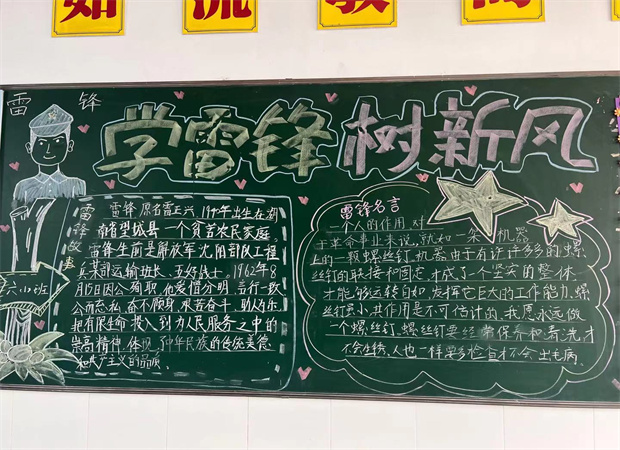 如 流 教
雷 锋
学雷锋 树新风
雷锋故事
雷锋 原名雷正兴,1940年出生在湖
南省望城县一个贫苦农民家庭。
雷锋生前是解放军沈阳部队工程
兵某部运输班长、五好战士。1962年8
月15日因公殉职,他爱憎分明,言行一致
公而忘私,奋不顾身,艰苦奋斗,助人为乐
把有限生命投入到为人民服务之中的
崇高精神,体现了中华民族的传统美德
和共产主义的品质。
六小班
雷锋名言
一个人的作用,对
于革命事业来说,就如一架机器
上的一颗螺丝钉,机器由于有许许多多的螺
丝钉的联接和固定,才成了一个坚实的整体
才能够运转自如,发挥它巨大的工作能力,螺
丝钉虽小,其作用是不可估计的,我愿永远做
一个螺丝钉,螺丝钉要经常保养和清洗,才
不会生锈,人也一样要多检查才不会出毛病。